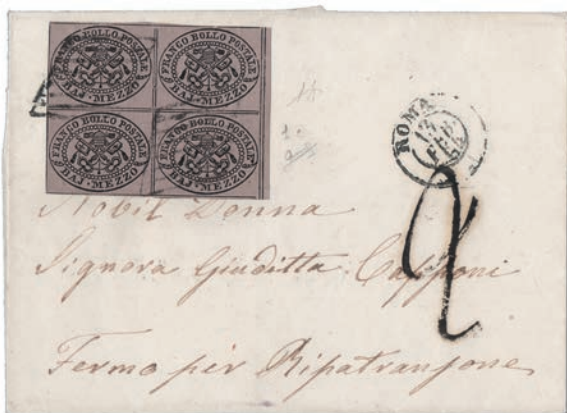 FRANCO BOLLO POSTALE
BAJ. MEZZO
FRANCO BOLLO POSTALE
BAJ. MEZZO
FRANCO BOLLO POSTALE
BAJ. MEZZO
FRANCO BOLLO POSTALE
BAJ. MEZZO
ROMA
FEB
2
Nobil Donna
Signora Giuditta Capponi
Fermo per Ripatransone